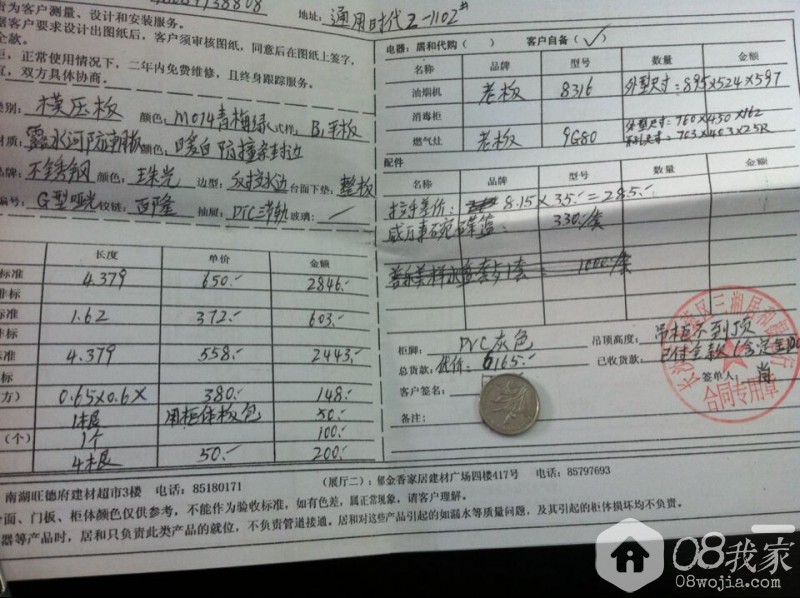 责为客户测量、设计和安装服务。
据客户要求设计出图纸后，客户须审核图纸，同意后在图纸上签字，
全款。
定，正常使用情况下，二年内免费维修，且终身跟踪服务。
宜，双方具体协商。
地址：通用时代2-1102#
类别：模压板 颜色：M014青梅绿 式样：B1平板
材质：露水河防潮板 颜色：暖白防撞条封边
品牌：不锈钢 颜色：珠光 边型：双挡水边 台面下垫：整板
编号：G型哑光 铰链： 抽屉：DTC滑轨 玻璃：/
长度 单价 金额
标准 4.379 650.- 2846.-
非标
标准 1.62 372.- 603.-
非标
标准 4.379 558.- 2443.-
标
方） 0.65x0.6x 380.- 148.-
1根 用柜体板包 50.-
（个） 1个 100.-
4根 50.- 200.-
电器：居和代购（ ） 客户自备（√）
名称 品牌 型号 数量 金额
油烟机 老板 8316 外型尺寸：895x524x597
消毒柜
燃气灶 老板 9G80 外型尺寸：760x450x162
703x403x25R
配件
名称 品牌 型号 数量 金额
拉手差价： 8.15x35.-=285.-
330.-/套
1000.-/套
柜脚：DTC灰色 吊顶高度：吊柜不到顶
总货款：优价：6165.- 已收货款：已付全款(含定金
客户签名： 签单人：肖
备注：
合同专用章
南湖旺德府建材超市3楼 电话：85180171 （展厅二）：郁金香家居建材广场四楼417号 电话：85797693
台面、门板、柜体颜色仅供参考，不能作为验收标准，如有色差，属正常现象，请客户理解。
器等产品时，居和只负责此类产品的就位，不负责管道接通。居和对这些产品引起的如漏水等质量问题，及其引起的柜体损坏均不负责。
08我家
08wojia.com